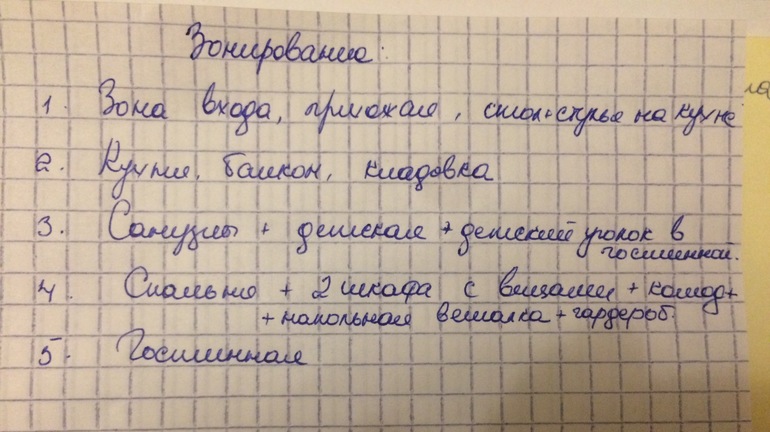 Зонирование:
1. Зона входа, прихожая, стол+стулья на кухне
2. Кухня, балкон, кладовка
3. Санузлы + детская + детский уголок в
гостинной.
4. Спальня + 2 шкафа с вещами + комод+
+напольная вешалка+гардероб.
5. Гостинная